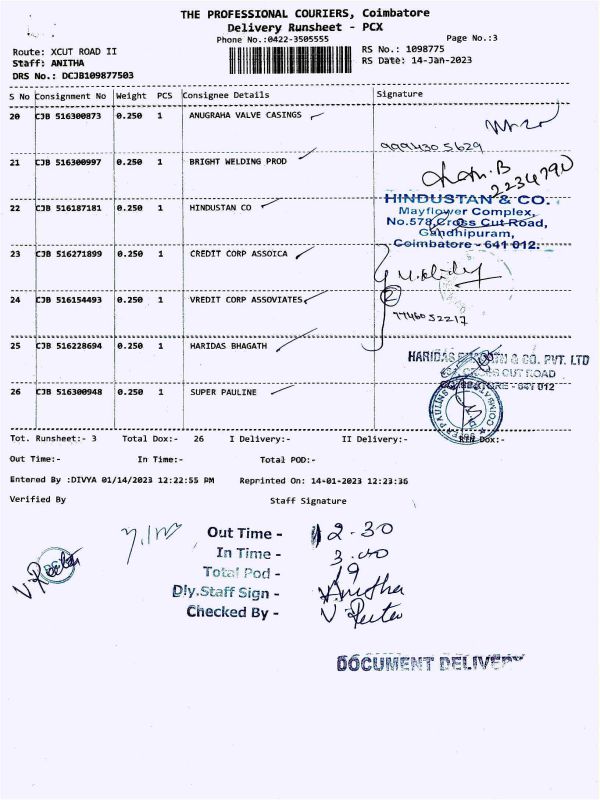 THE PROFESSIONAL COURIERS, Coimbatore
Delivery Runsheet - PCX
Phone No.:0422-3505555
Page No.:3
Route: XCUT ROAD II
RS No.: 1098775
Staff: ANITHA
RS Date: 14-Jan-2023
DRS No.: DCJB109877503
S No Consignment No Weight PCS Consignee Details Signature
20 CJB 516300873 0.250 1 ANUGRAHA VALVE CASINGS
9994305629
21 CJB 516300997 0.250 1 BRIGHT WELDING PROD
2234790
22 CJB 516187181 0.250 1 HINDUSTAN CO
HINDUSTAN & CO.
Mayflower Complex,
No.578, Cross Cut Road,
Gandhipuram,
Coimbatore - 641 012.
23 CJB 516271899 0.250 1 CREDIT CORP ASSOICA
24 CJB 516154493 0.250 1 VREDIT CORP ASSOVIATES
2
7746052217
25 CJB 516228694 0.250 1 HARIDAS BHAGATH
HARIDAS & CO. PVT. LTD
CROSS CUT ROAD
COIMBATORE - 641 012
26 CJB 516300948 0.250 1 SUPER PAULINE
Tot. Runsheet:- 3 Total Dox:- 26 I Delivery:- II Delivery:- RTN Dox:-
Out Time:- In Time:- Total POD:-
Entered By :DIVYA 01/14/2023 12:22:55 PM Reprinted On: 14-01-2023 12:23:36
Verified By Staff Signature
Out Time - 12.30
In Time - 3.00
Total Pod - 19
Dly.Staff Sign - Anitha
Checked By -
DOCUMENT DELIVERY